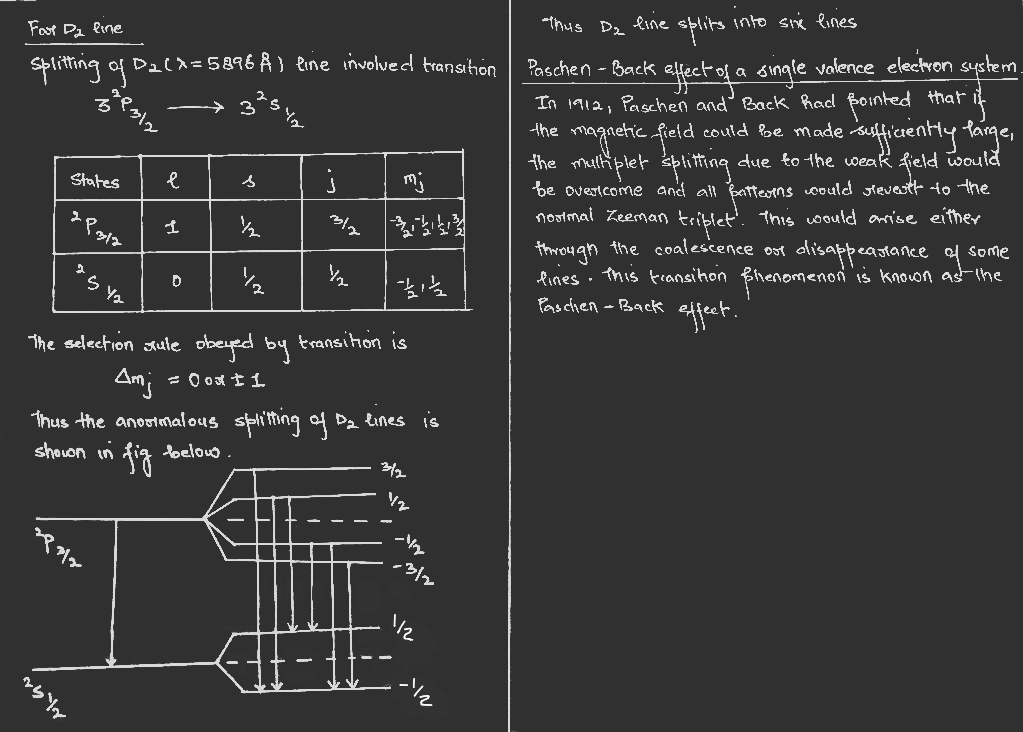 For D2 line
Splitting of D2 (λ = 5896 Å) line involved transition
3²P3/2 ⟶ 3²S1/2
States l s j mj
²P3/2 1 1/2 3/2 -3/2, -1/2, 1/2, 3/2
²S1/2 0 1/2 1/2 -1/2, 1/2
The selection rule obeyed by transition is
Δmj = 0 or ± 1
Thus the anormalous splitting of D2 lines is
shown in fig below.
3/2
1/2
-1/2
-3/2
²P3/2
1/2
-1/2
²S1/2
Thus D2 line splits into six lines
Paschen - Back effect of a single valence electron system
In 1912, Paschen and Back had pointed that if
the magnetic field could be made sufficiently large,
the multiplet splitting due to the weak field would
be overcome and all patterns would revert to the
normal Zeeman triplet. This would arise either
through the coalescence or disappearance of some
lines. This transition phenomenon is known as the
Paschen - Back effect.